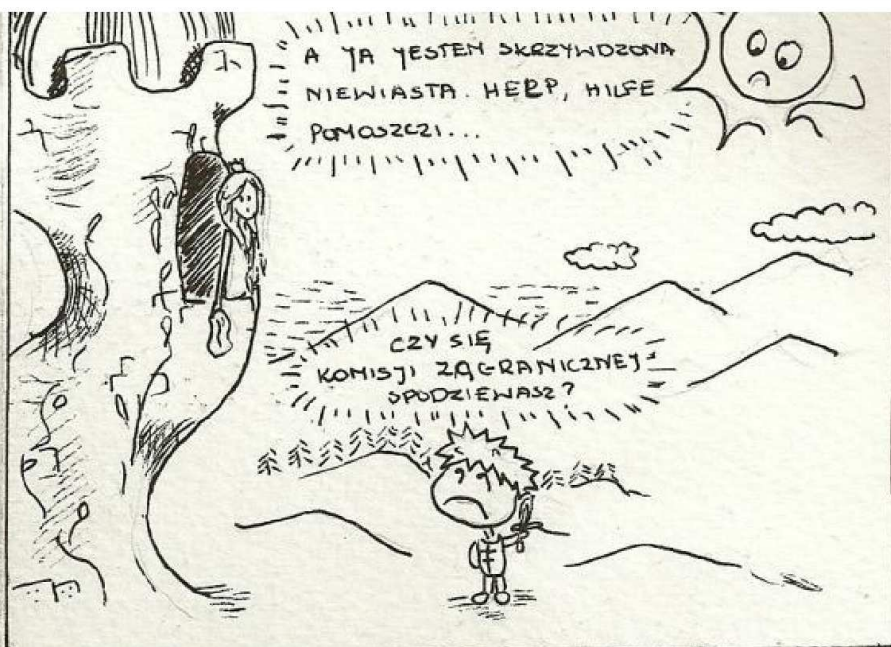 A YA YESTEM SKRZYWDZONA
NIEWIASTA. HELP, HILFE
POMOSZCZI...
CZY SIĘ
KOMISYI ZAGRANICZNEY
SPODZIEWASZ?